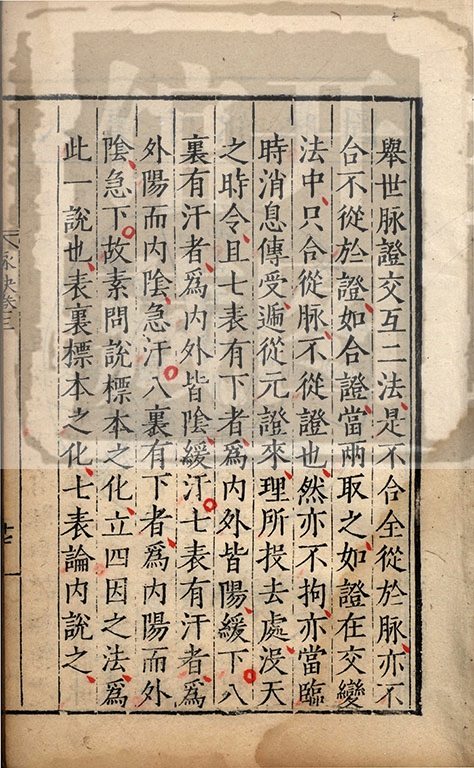 舉世脉證交互二法是不合全從於脉亦不
合不從於證如合證當兩取之如證在交變
法中只合從脉不從證也然亦不拘亦當臨
時消息傳受遁從元證來理所投去處没天
之時令且七表有下者爲内外皆陽緩下八
裏有汗者爲内外皆陰緩汗七表有汗者爲
外陽而内陰急汗八裏有下者爲内陽而外
陰急下故素問説標本之化立四因之法爲
此一説也表裏標本之化七表論内説之